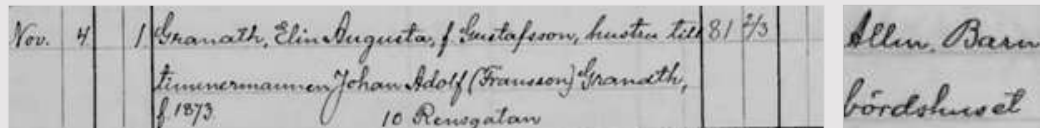 Nov. 4 1 Granath, Elin Augusta, f Gustafsson, hustru till 81 2/3
timmermannen Johan Adolf (Fransson) Granath,
f 1873 10 Rensgatan
Allm. Barn
bördshuset